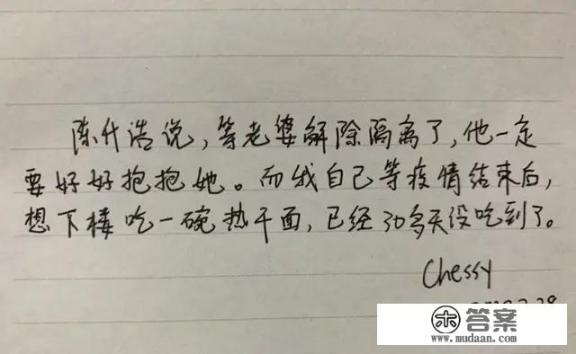 陈升浩说，等老婆解除隔离了，他一定
要好好抱抱她。而我自己等疫情结束后，
想下楼吃一碗热干面，已经30多天没吃到了。
Chessy
答案
www.mudaan.com